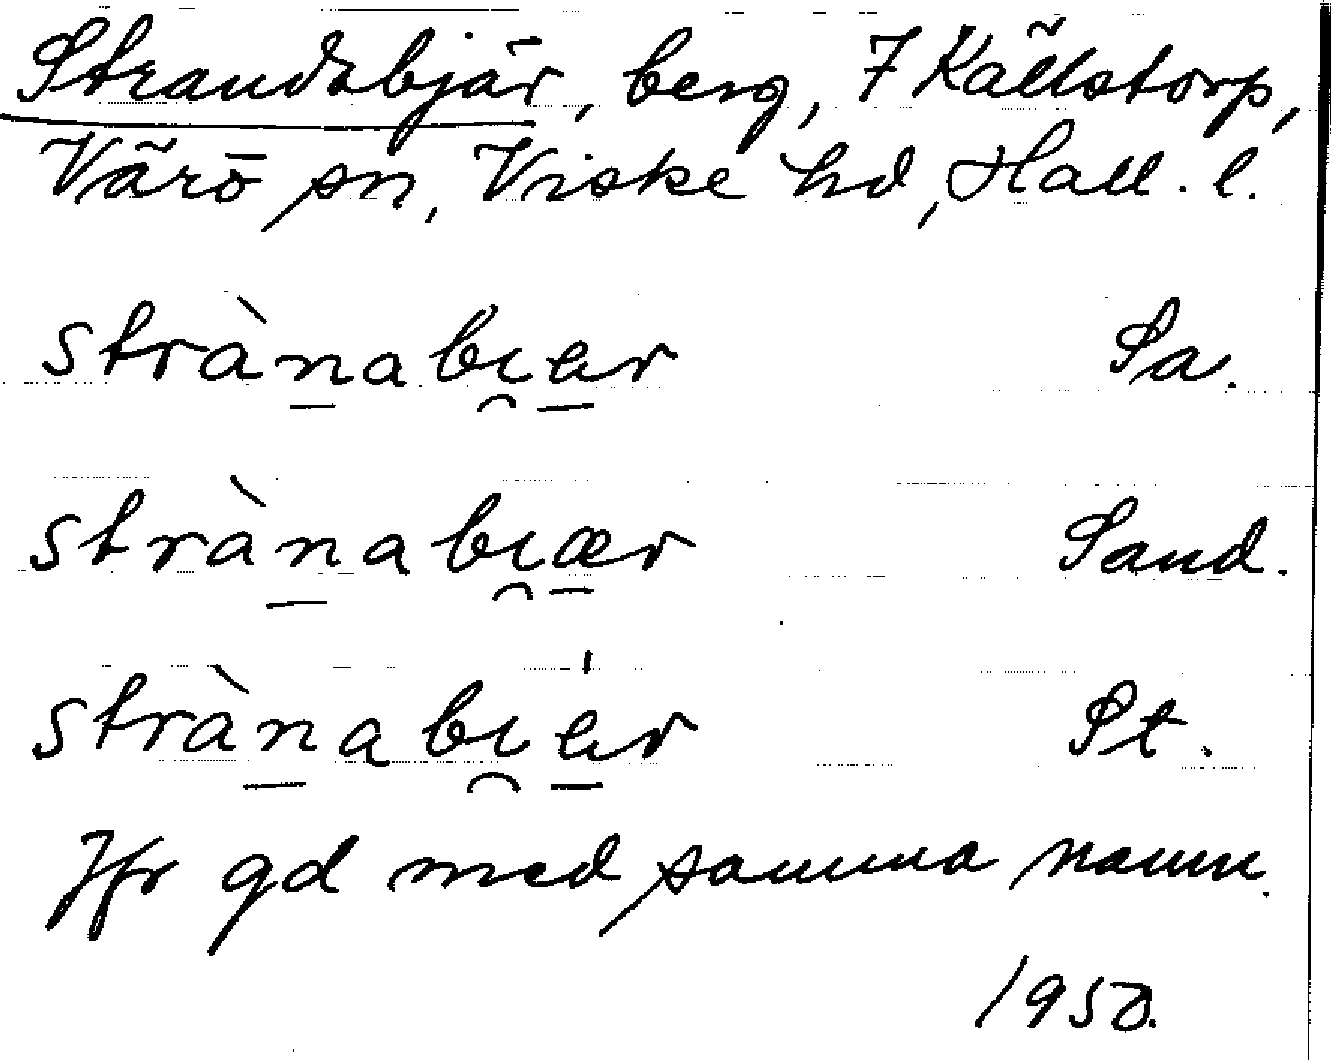 Strandsbjär, berg, 7 Källstorp,
Värö sn, Viske hd, Hall. l.
strànabıær Sa.
strànabıær Sand.
strànabıær St.
Jfr gd med samma namn.
1950.